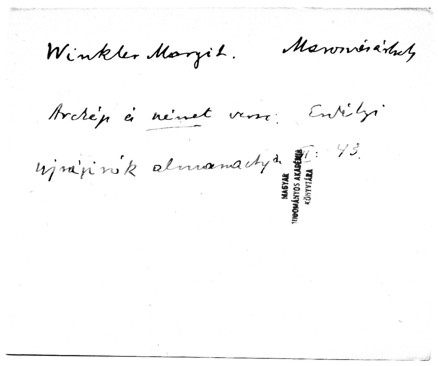 Winkler Margit. Marosvásárhely
Arckép és német verse: Erdélyi
ujságirók almanachja I: 43.
MAGYAR
TUDOMÁNYOS AKADÉMIA
KÖNYVTÁRA